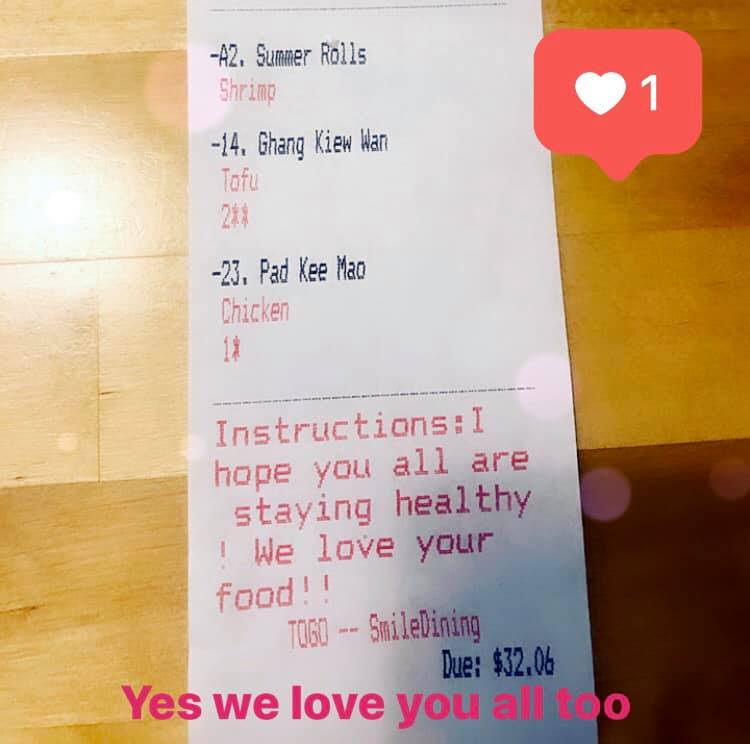 -A2. Summer Rolls
Shrimp
1
-14. Ghang Kiew Wan
Tofu
2**
-23. Pad Kee Mao
Chicken
1*
Instructions:I
hope you all are
staying healthy
! We love your
food!!
TOGO -- SmileDining
Due: $32.06
Yes we love you all too